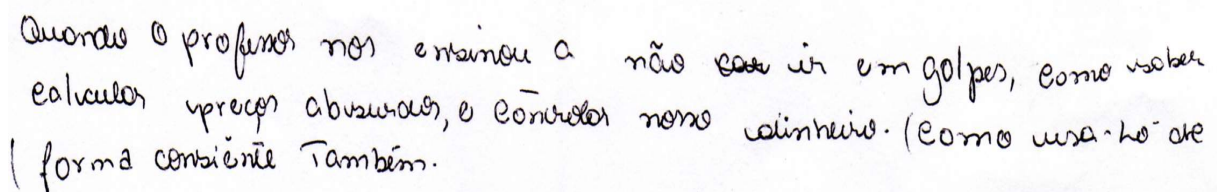 Quando o professor nos ensinou a não cair em golpes, como saber
calcular preços abusurdos, e controlar nosso dinheiro. (como usa-lo de
( forma consiênte Também.